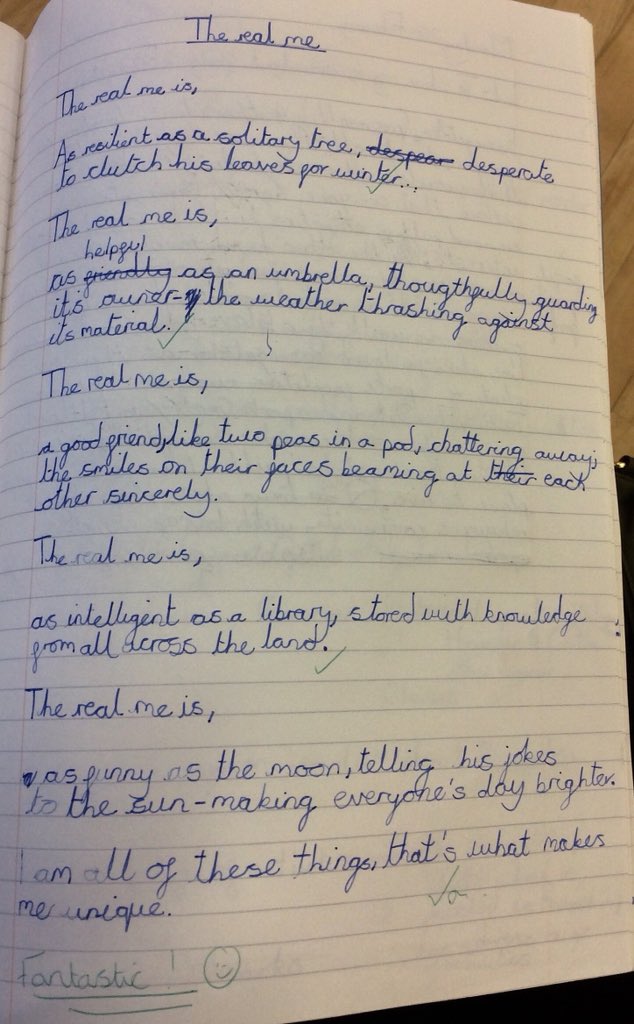 The real me
The real me is,
As resilient as a solitary tree, despear desperate
to clutch his leaves for winter...
The real me is,
helpful
as friendly as an umbrella, thougthfully guarding
it's owner- the weather thrashing against
its material.
The real me is,
a good friend, like two peas in a pod, chattering away;
the smiles on their faces beaming at their each
other sincerely.
The real me is,
as intelligent as a library, stored with knowledge
from all across the land.
The real me is,
as funny as the moon, telling his jokes
to the sun-making everyone's day brighter.
I am all of these things, that's what makes
me unique.
Fantastic!